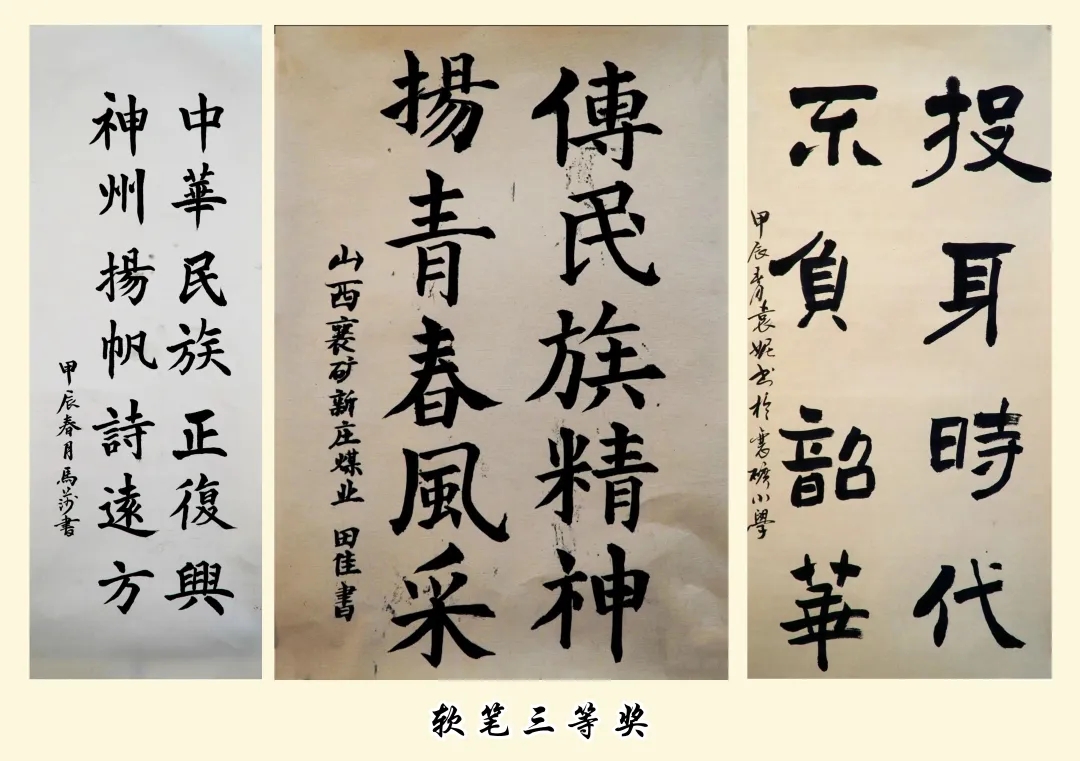 中華民族正復興
神州揚帆詩遠方
甲辰春月馬莎書
傳民族精神
揚青春風采
山西襄矿新庄煤业 田佳書
投身時代
不負韶華
甲辰春袁妮书於襄礦小學
软笔三等奖